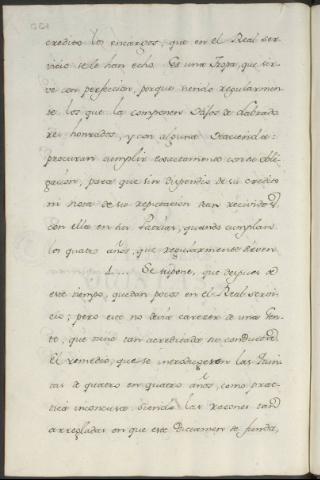 credito los encargos, que en el Real ser-
vicio se le han echo. Es una Tropa, que sir-
ve con perfeccion, porque siendo regularmen-
te los que la componen hijos de Labrado-
res honrados, y con alguna Hacienda:
procuran cumplir exactamente con su obli-
gacion, para que sin dispendio de su credito
ni nota de su reputacion sean recividos
con ella en las Patrias, quando cumplan
los quatro años, que regularmente sirven
1.... Se supone, que despues de
este tiempo, quedan pocos en el Real servi-
cio; pero este no devia carecer de una Gen-
te, que tanto tan acreditada su conducta:
El remedio, que se introdugesen las Quin-
tas de quatro en quatro años, como prac-
tica inconcusa siendo las razones tan
arregladas en que este Dictamen se funda,